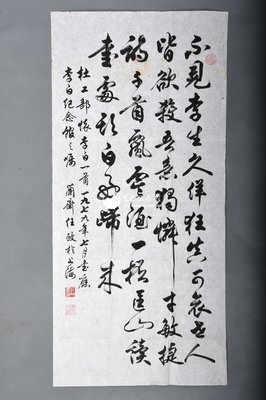 不見李生久佯狂真可哀世人
皆欲殺吾意獨憐才敏捷
詩千首飄零酒一杯匡山讀
書處頭白好歸來
杜工部懷李白一首一九七九年七月書應
李白纪念館之嘱 蘭齋任政於上海